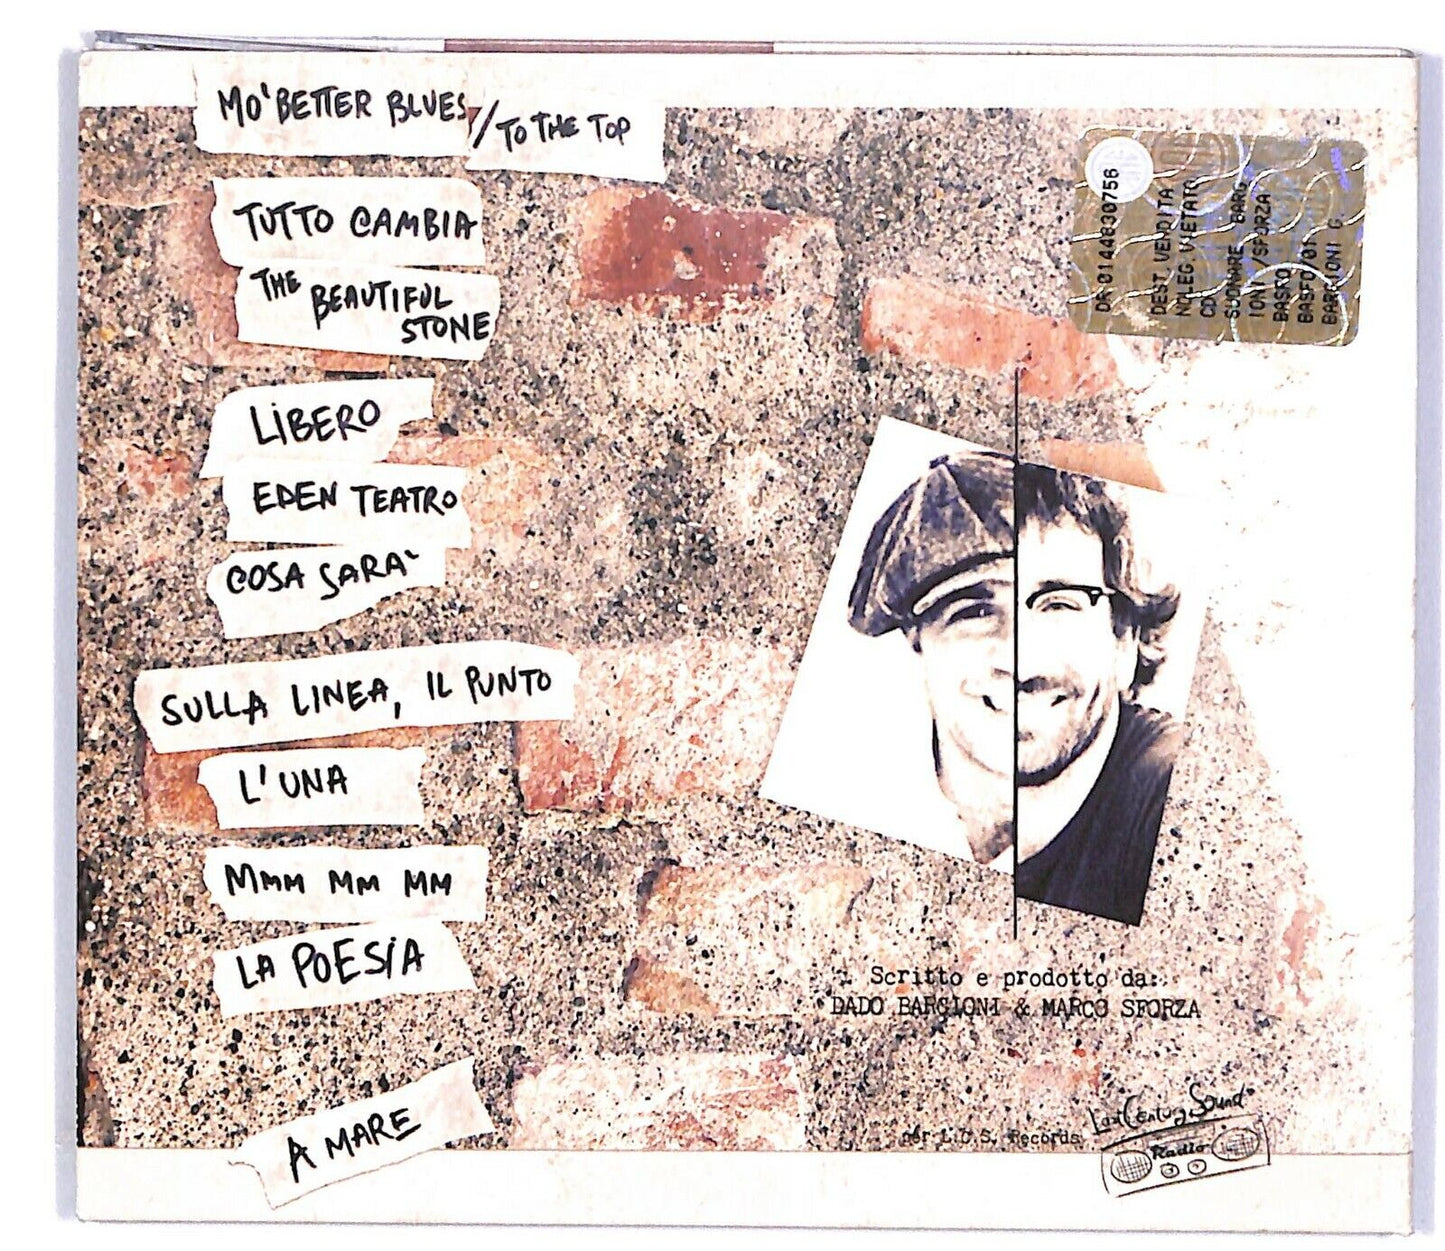 MO' BETTER BLUES / TO THE TOP
TUTTO CAMBIA
THE BEAUTIFUL
STONE
LIBERO
EDEN TEATRO
COSA SARA'
SULLA LINEA, IL PUNTO
L'UNA
Mmm MM MM
LA POESIA
A MARE
DR 014483075
DEST VENDITA
NOLEG VIETATO
CD
SUONARE BARG
IONI/SFORZA
BASFO
BASFO/01
BARGIONI G.
Scritto e prodotto da:
DADO BARGIONI & MARCO SFORZA
per L.C.S. Records
Last Century Sound
Radio